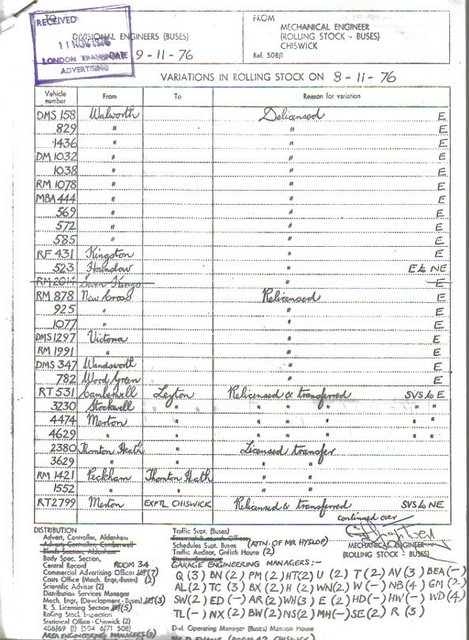 To
DIVISIONAL ENGINEERS (BUSES)
RECEIVED
11 NOV 1976
LONDON TRANSPORT
ADVERTISING
DATE 9-11-76
FROM
MECHANICAL ENGINEER
(ROLLING STOCK - BUSES)
CHISWICK
Ref. 508/1
VARIATIONS IN ROLLING STOCK ON 8-11-76
Vehicle number From To Reason for variation
DMS 158 Walworth Delicensed E
829 " " E
1436 " " E
DM 1032 " " E
1038 " " E
RM 1078 " " E
MBA 444 " " E
569 " " E
572 " " E
585 " " E
RF 431 Kingston " E
523 Hounslow " E to NE
RM 2014 Seven Kings " E
RM 878 New Cross Relicensed E
925 " " E
1077 " " E
DMS 1297 Victoria " E
RM 1991 " " E
DMS 347 Wandsworth " E
782 Wood Green " E
RT 531 Camberwell Leyton Relicensed & transferred SVS to E
3230 Stockwell " " " " " "
4474 Merton " " " " " "
4629 " " " " " " "
2380 Thornton Heath " Licensed transfer
3629 " " " "
RM 1421 Peckham Thornton Heath " "
1552 " " " "
RT 2799 Merton EXPTL CHISWICK Relicensed & transferred SVS to NE
continued over
MECHANICAL ENGINEER
(ROLLING STOCK - BUSES)
DISTRIBUTION
Advert. Controller, Aldenham
Body Spec. Section,
Central Record ROOM 34
Commercial Advertising Officer (7)
Costs Office (Mech. Engr. Buses) (2)
Scientific Adviser (2)
Distribution Services Manager
Mech. Engr. (Development - Buses) (3)
R. S. Licensing Section (5)
Rolling Stock Inspection
Statistical Office - Chiswick (2)
AREA ENGINEERING MANAGERS
Traffic Supt. (Buses)
Schedules Supt. (Buses) (ATTN. OF MR HYSLOP)
Traffic Auditor, Griffith House (2)
GARAGE ENGINEERING MANAGERS:-
Q (3) BN (2) PM (2) HT (2) U (2) T (2) AV (3) BEA (-)
AL (2) TC (3) BX (2) H (2) WN (2) W (-) NB (4) GM (2)
SW (2) ED (-) AR (2) WH (3) E (2) HD (-) HW (-) WD (4)
TL (-) NX (2) BW (2) NS (2) MH (-) SE (2) R (3)
Divl. Operating Manager (Buses) Mansion House